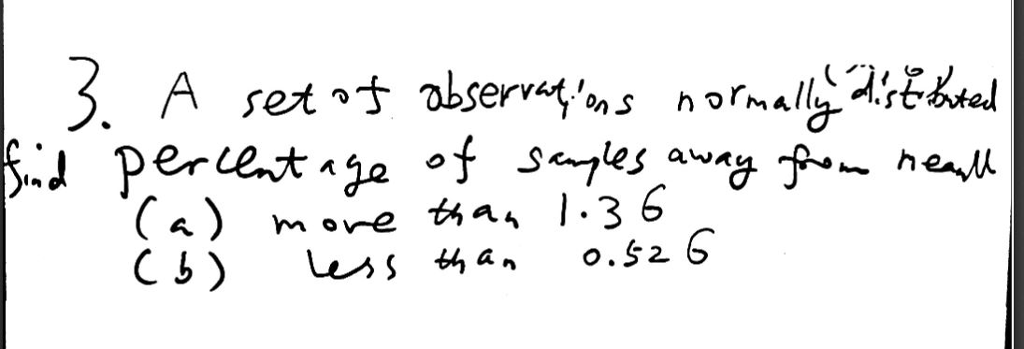 3. A set of observations normally distributed
find percentage of samples away from
(a) more than 1.3 σ
(b) less than 0.52 σ